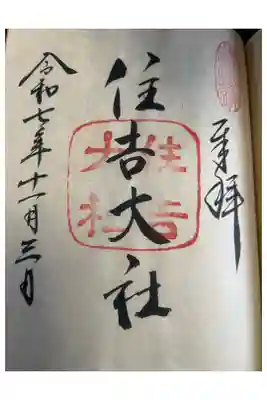 奉拝
住吉大社
住吉
大社
令和七年十一月三日